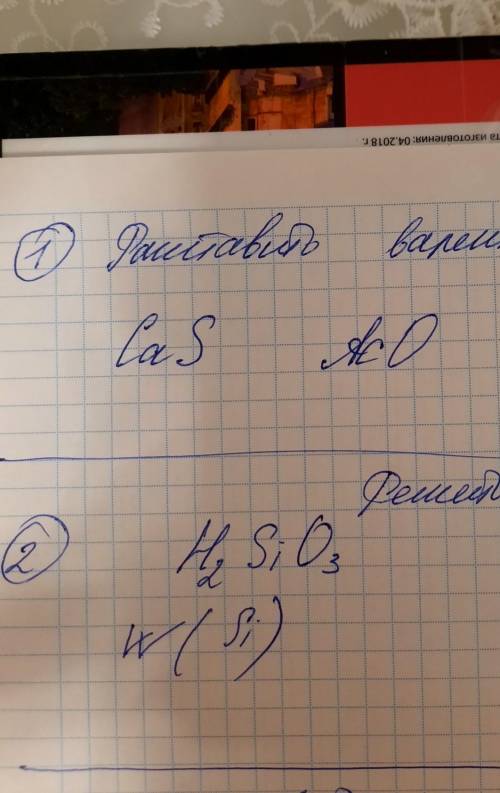 та изготовления: 04.2018 г.
1 Расставить вален
CaS AlO
Решить
2 H₂SiO₃
W (Si)